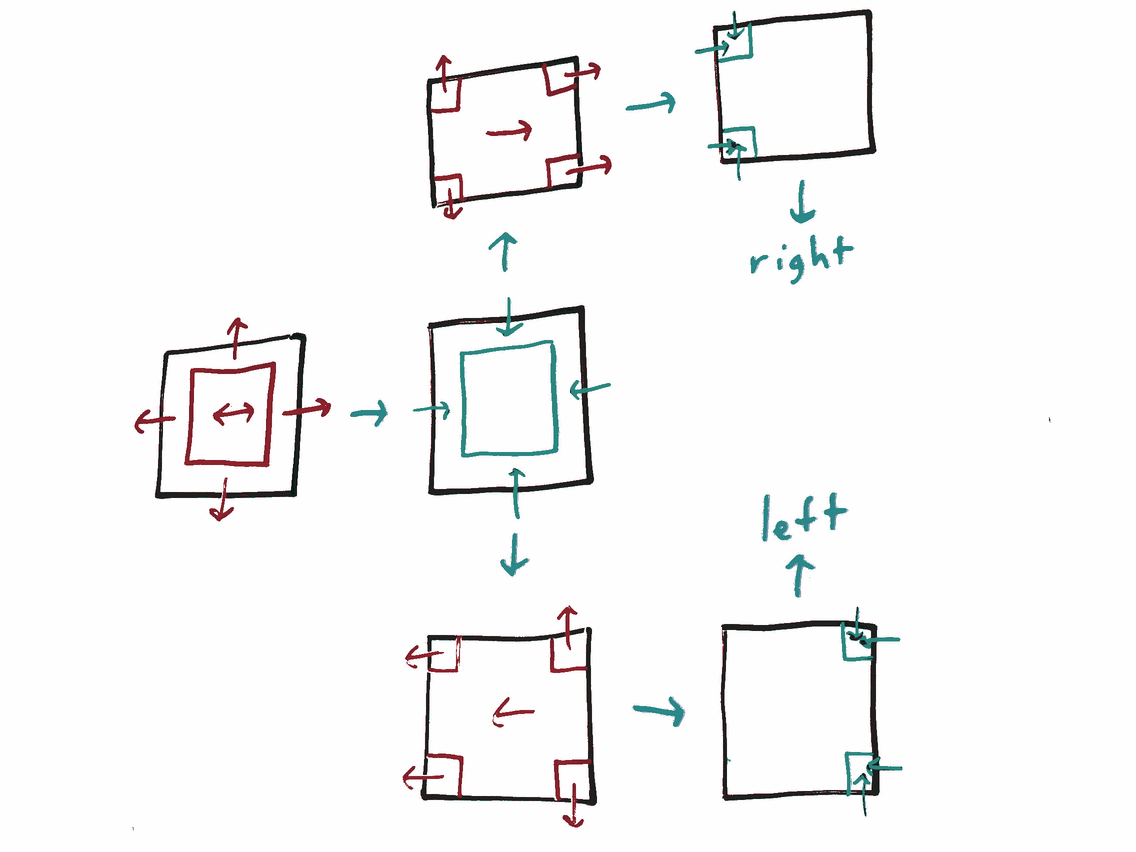 right
left